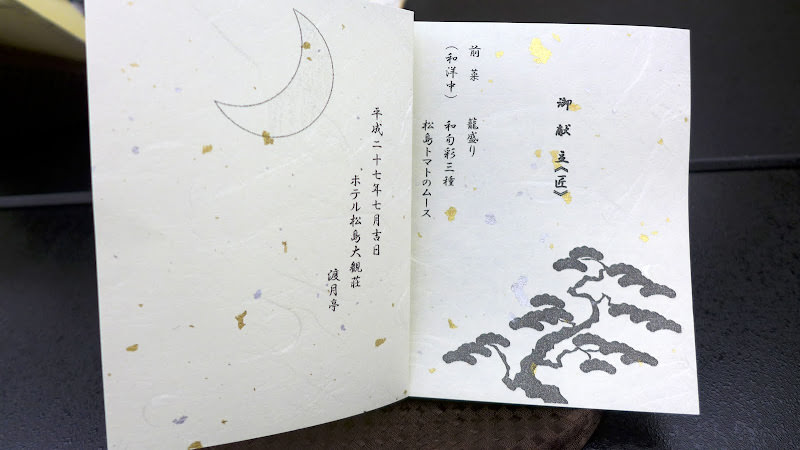 御献立《匠》
前菜　籠盛り
（和洋中）　和旬彩三種
松島トマトのムース
平成二十七年七月吉日
ホテル松島大観荘
渡月亭